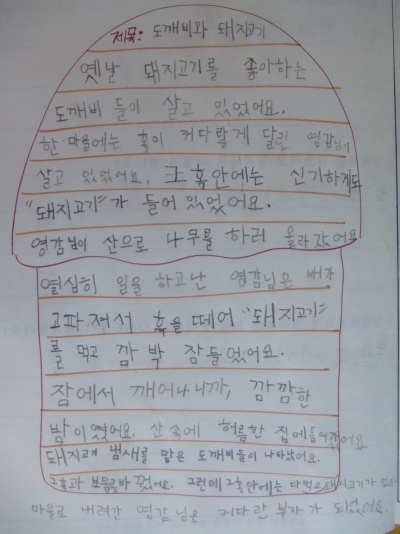 제목: 도깨비와 돼지고기
옛날 돼지고기를 좋아하는
도깨비 들이 살고 있었어요.
한 마을에는 혹이 커다랗게 달린 영감님이
살고 있었어요. 그 혹안에는 신기하게도
"돼지고기"가 들어 있었어요.
영감님이 산으로 나무를 하러 올라갔어요
열심히 일을 하고난 영감님은 배가
고파져서 혹을 떼어 "돼지고기"
를 먹고 깜박 잠들었어요.
잠에서 깨어나니까, 깜깜한
밤이였어요. 산속에 허름한 집에들어갔어요
돼지고기 냄새를 맡은 도깨비들이 나타났어요.
그혹과 보물로바꿨어요. 그런데 그혹안에는 다먹은돼지고기가
마을로 내려간 영감님은 커다란 부자가 되었어요.